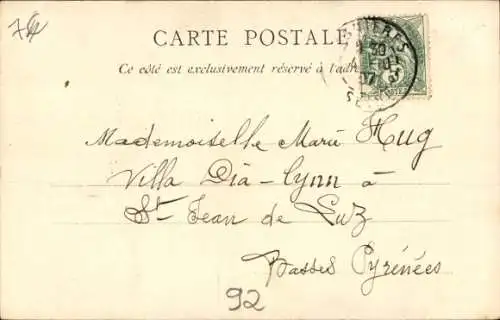 CARTE POSTALE
Ce côté est exclusivement réservé à l'adr
Mademoiselle Marie Hug
Villa Dia-Lynn à
St-Jean de Luz
Basses Pyrénées
92